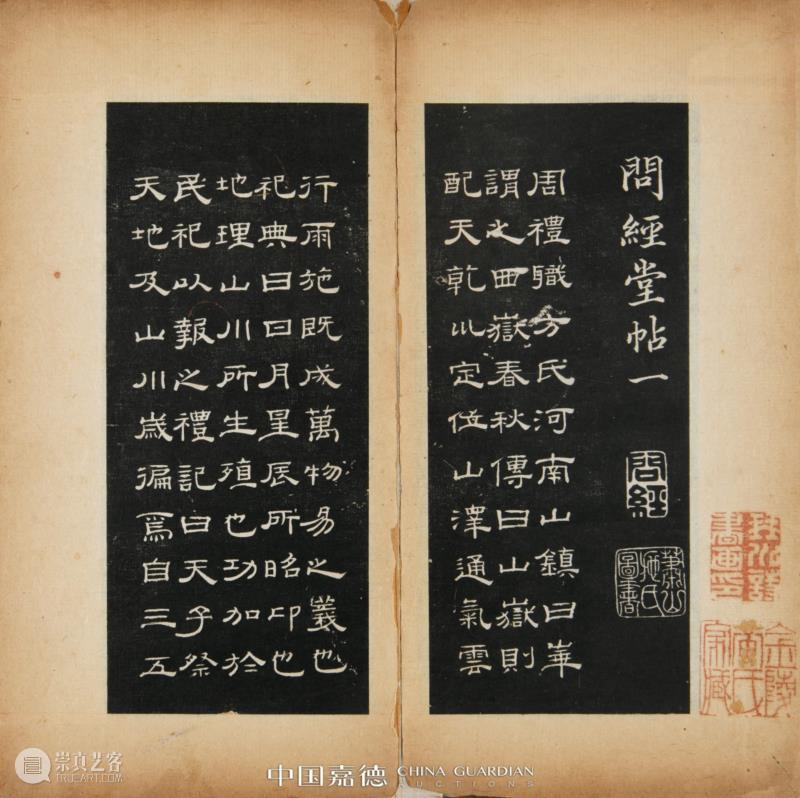 問經堂帖一
蕭山施氏圖書
周禮職方氏河南山鎮曰華
謂之西嶽春秋傳曰山嶽則
配天乾巛定位山澤通氣雲
行雨施既成萬物易之義也
祀典曰日月星辰所昭卬也
地理山川所生殖也功加於
民祀以報之禮記曰天子祭
天地及山川歲徧焉自三五
崇真艺客
TRUEART.COM
中国嘉德 CHINA GUARDIAN
AUCTIONS